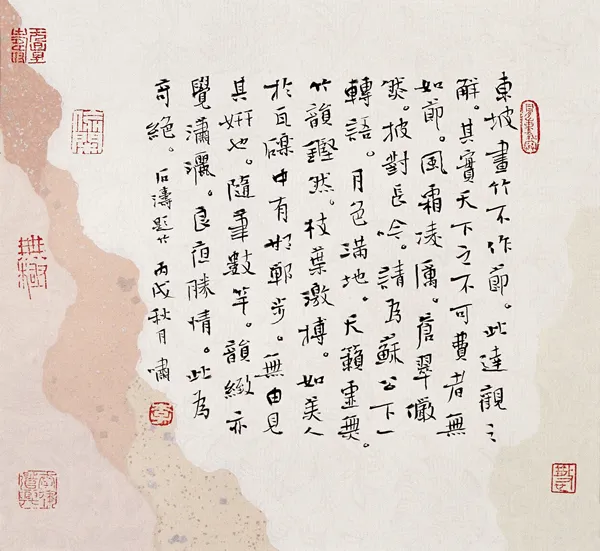 東坡畫竹不作節。此達觀之
解。其實天下之不可費者無
如節。風霜凌厲。蒼翠儼
然。披對長吟。請為蘇公下一
轉語。月色滿地。天籟虛無。
竹韻鏗然。枝葉激搏。如美人
於瓦礫中有邯鄲步。無由見
其妍也。隨聿數竿。韻緻亦
覺瀟灑。良夜勝情。此為
奇絕。石濤題竹 丙戌秋月 嘯